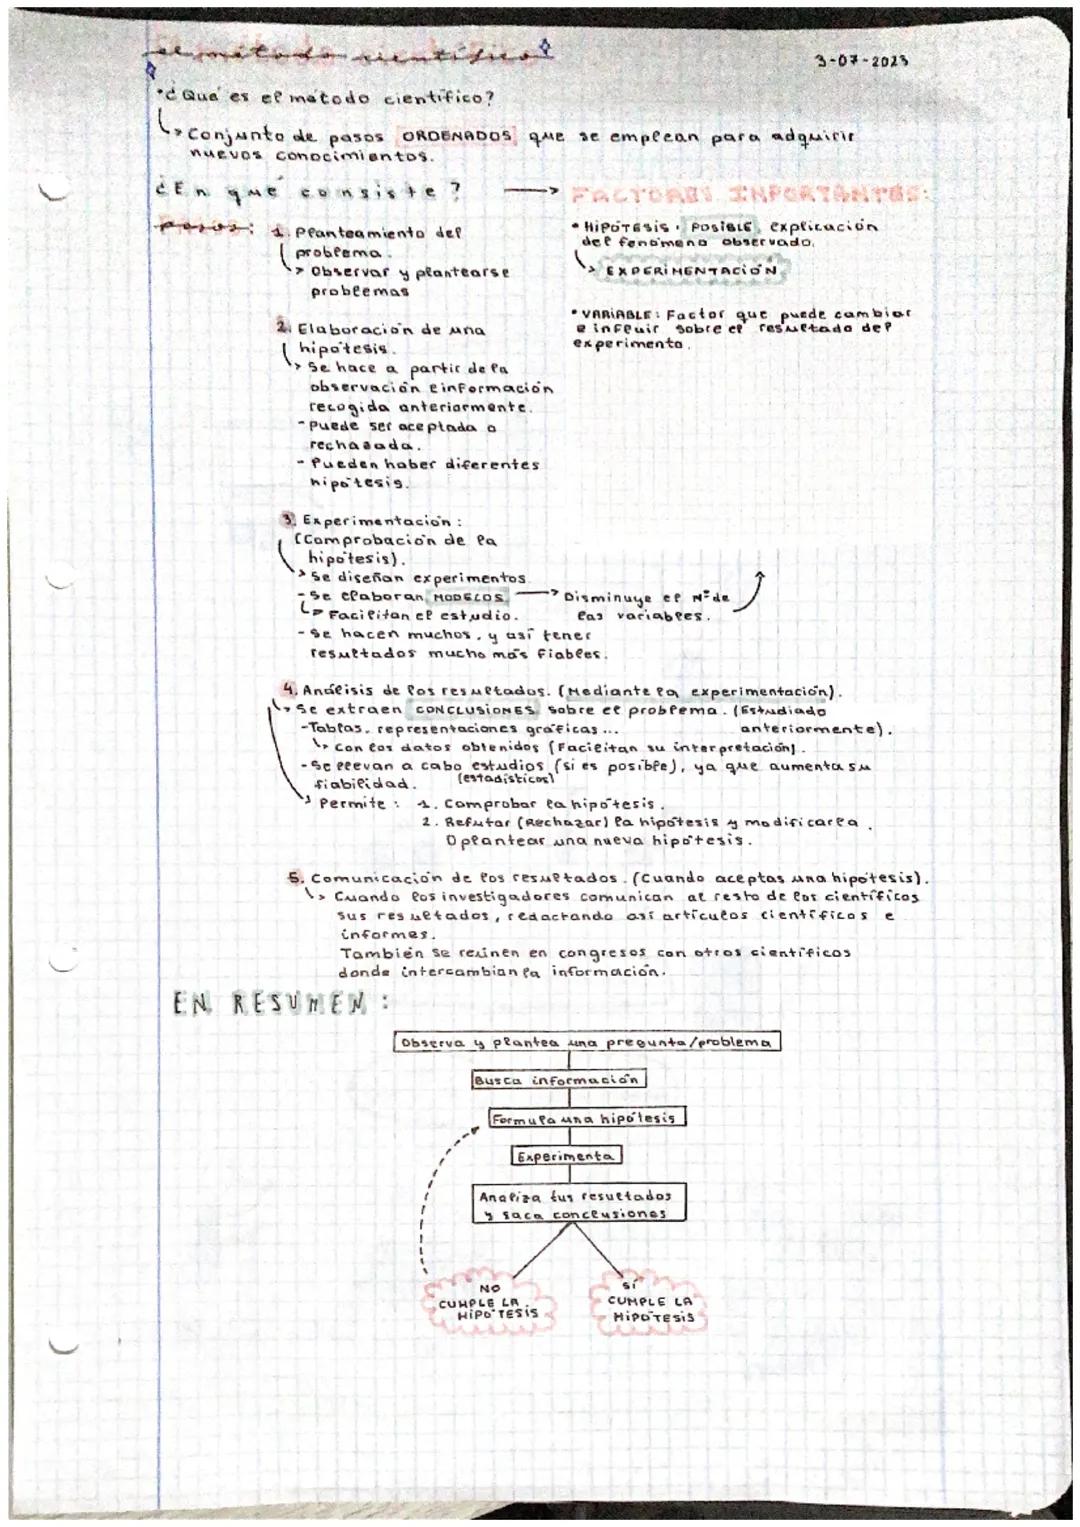 el método científico
3-07-2023
• ¿Qué es el método científico?
↳ Conjunto de pasos ORDENADOS que se emplean para adquirir
nuevos conocimientos.
¿En qué consiste? → FACTORES IMPORTANTES:
pasos: 1. Planteamiento del
problema.
↳ Observar y plantearse
problemas
• HIPÓTESIS: POSIBLE explicación
del fenómeno observado.
↳ EXPERIMENTACIÓN
• VARIABLE: Factor que puede cambiar
e influir sobre el resultado del
experimento.
2. Elaboración de una
hipótesis.
↳ Se hace a partir de la
observación e información
recogida anteriormente.
- Puede ser aceptada o
rechazada.
- Pueden haber diferentes
hipótesis.
3. Experimentación:
(Comprobación de la
hipótesis).
↳ Se diseñan experimentos.
- Se elaboran MODELOS → Disminuye el Nº de
las variables.
↳ Facilitan el estudio.
- Se hacen muchos, y así tener
resultados mucho más fiables.
4. Análisis de los resultados. (Mediante la experimentación).
↳ Se extraen CONCLUSIONES sobre el problema. (Estudiado
anteriormente).
- Tablas, representaciones gráficas...
↳ Con los datos obtenidos (Facilitan su interpretación).
- Se llevan a cabo estudios (si es posible), ya que aumenta su
(estadísticos)
fiabilidad.
↳ Permite: 1. Comprobar la hipótesis.
2. Refutar (Rechazar) la hipótesis y modificarla.
O plantear una nueva hipótesis.
5. Comunicación de los resultados. (Cuando aceptas una hipótesis).
↳ Cuando los investigadores comunican al resto de los científicos
sus resultados, redactando así artículos científicos e
informes.
También se reúnen en congresos con otros científicos
donde intercambian la información.
EN RESUMEN:
Observa y plantea una pregunta/problema
Busca información
Formula una hipótesis
Experimenta
Analiza tus resultados
y saca conclusiones
NO
CUMPLE LA
HIPÓTESIS
SÍ
CUMPLE LA
HIPÓTESIS